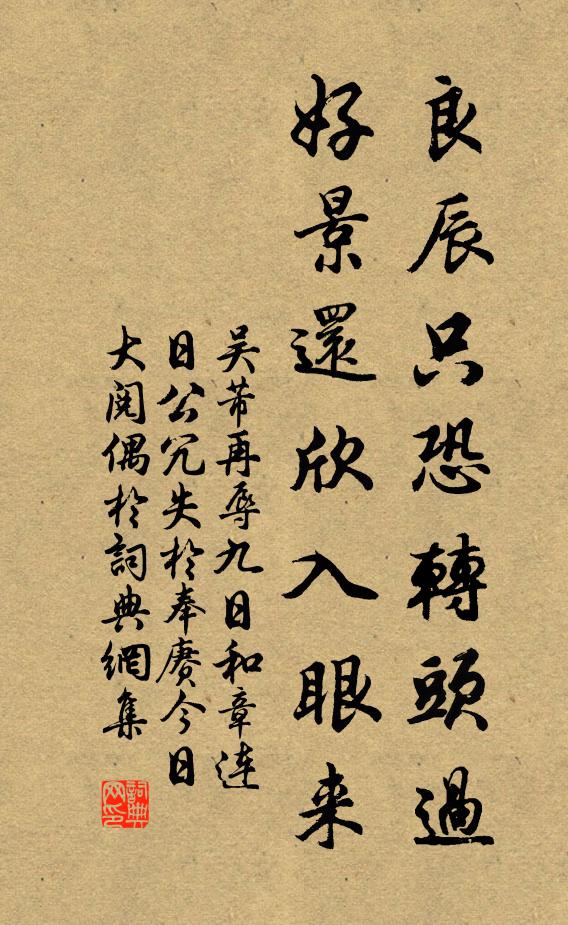 良辰只恐轉頭過
好景還欣入眼来
吳芾再辱九日和章連
日公冗失於奉賡今日
大閱偶於詞典網集
詞典网印